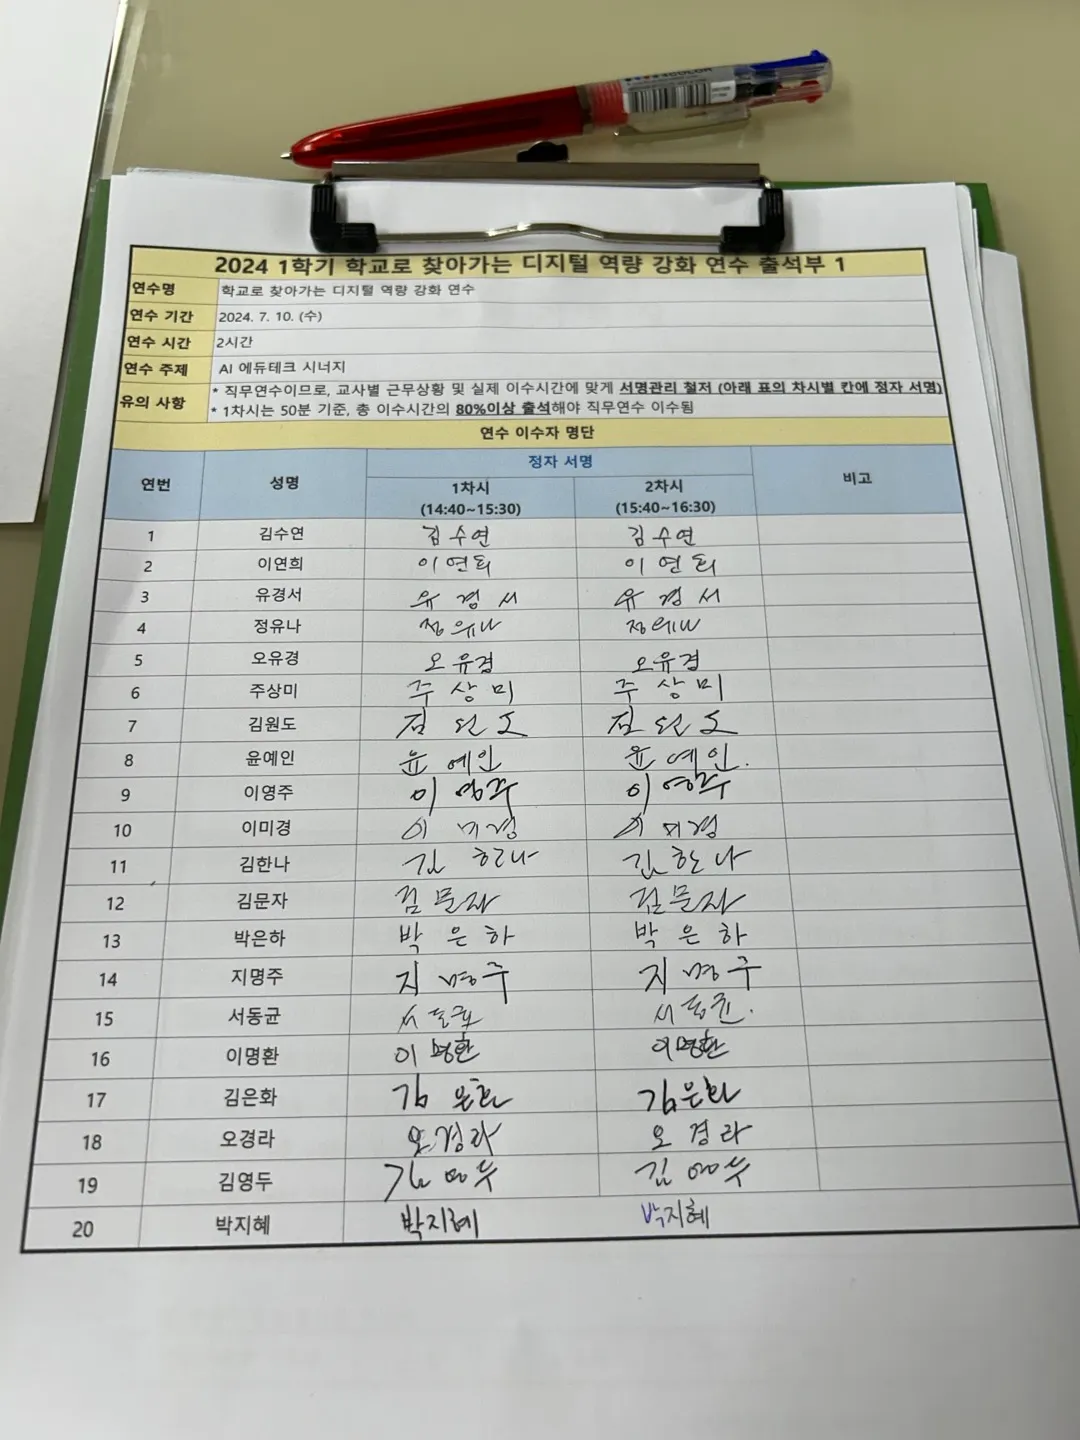 4COLOR
2024 1학기 학교로 찾아가는 디지털 역량 강화 연수 출석부 1
연수명 학교로 찾아가는 디지털 역량 강화 연수
연수 기간 2024. 7. 10. (수)
연수 시간 2시간
연수 주제 AI 에듀테크 시너지
유의 사항 * 직무연수이므로, 교사별 근무상황 및 실제 이수시간에 맞게 서명관리 철저 (아래 표의 차시별 칸에 정자 서명)
* 1차시는 50분 기준, 총 이수시간의 80%이상 출석해야 직무연수 이수됨
연수 이수자 명단
연번 성명 정자 서명 비고
1차시 2차시
(14:40~15:30) (15:40~16:30)
1 김수연 김수연 김수연
2 이연희 이연희 이연희
3 유경서 유경서 유경서
4 정유나 정유나 정유나
5 오유경 오유경 오유경
6 주상미 주상미 주상미
7 김원도 김원도 김원도
8 윤예인 윤예인 윤예인.
9 이영주 이영주 이영주
10 이미경 이미경 이미경
11 김한나 김한나 김한나
12 김문자 김문자 김문자
13 박은하 박은하 박은하
14 지명주 지명주 지명주
15 서동균 서동균 서동균.
16 이명환 이명환 이명환
17 김은화 김은화 김은화
18 오경라 오경라 오경라
19 김영두 김영두 김영두
20 박지혜 박지혜 박지혜